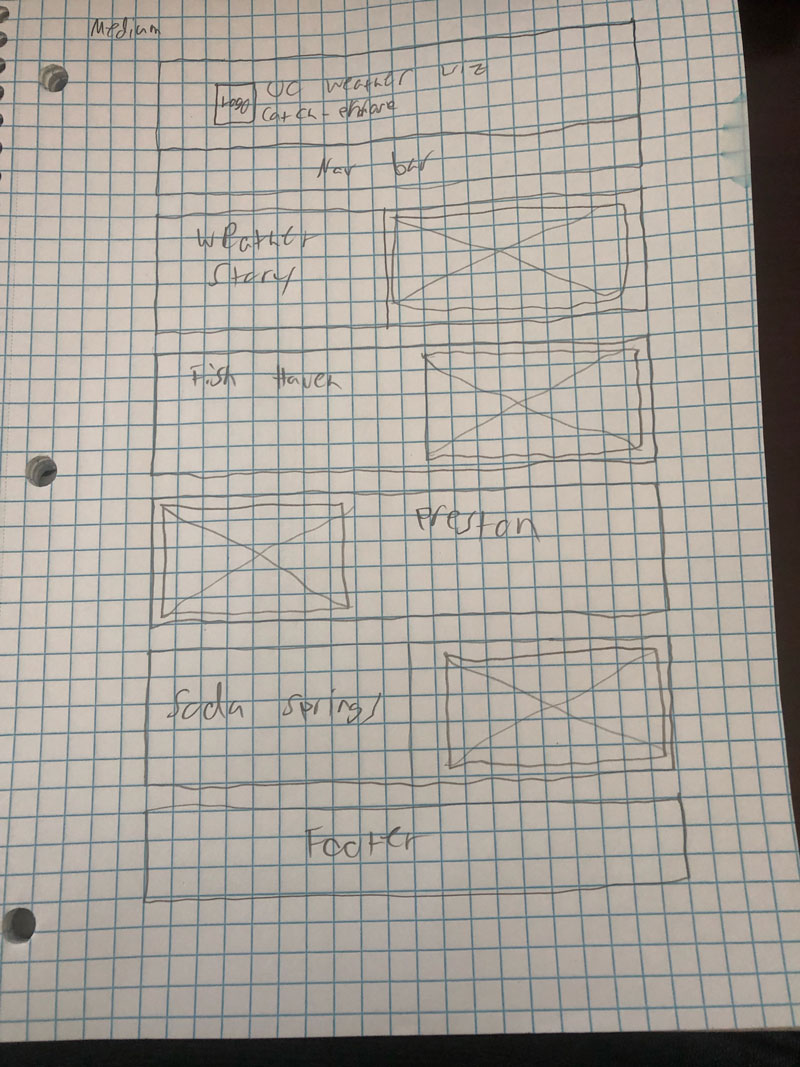 Medium
Logo
weather
Nav bar
Weather
Story
Fish Haven
Preston
Soda Springs
Footer